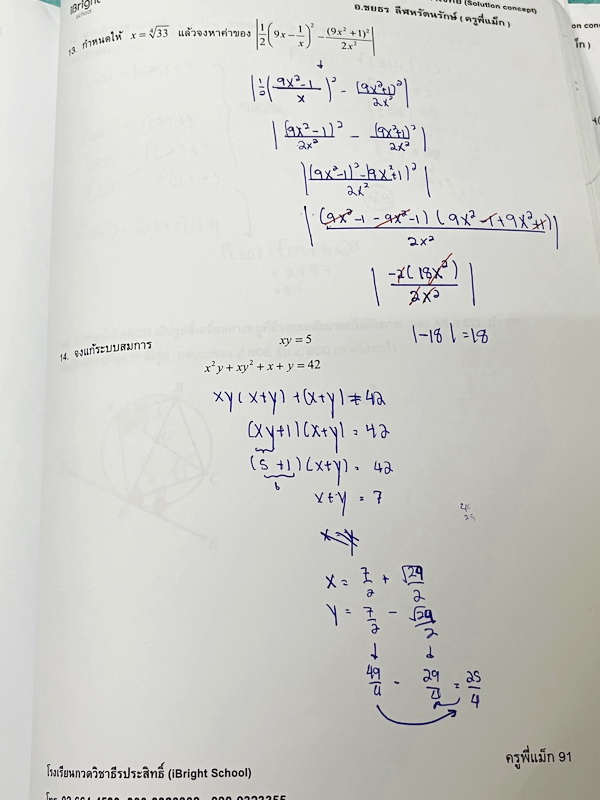 iBright
SCHOOL
(Solution concept)
อ.ชยธร ลีฬหรัตนรักษ์ ( ครูพี่แม็ก )
13. กำหนดให้ x = ∜33 แล้วจงหาค่าของ |1/2 (9x − 1/x)² − (9x² +1)²/2x²|
|1/2 ((9x²−1)/x)² − (9x²+1)²/2x²|
|(9x²−1)²/2x² − (9x²+1)²/2x²|
|((9x²−1)² − (9x²+1)²)/2x²|
|(9x²−1−9x²−1)(9x²−1+9x²+1)/2x²|
|−2(18x²)/2x²|
|−18| = 18
14. จงแก้ระบบสมการ xy = 5
x²y + xy² + x + y = 42
xy(x+y) + (x+y) = 42
(xy+1)(x+y) = 42
(5+1)(x+y) = 42
6
x+y = 7
x = 7/2 + √29/2
y = 7/2 − √29/2
49/4 − 29/4 = 25/4
โรงเรียนกวดวิชาธีรประสิทธิ์ (iBright School)
ครูพี่แม็ก 91